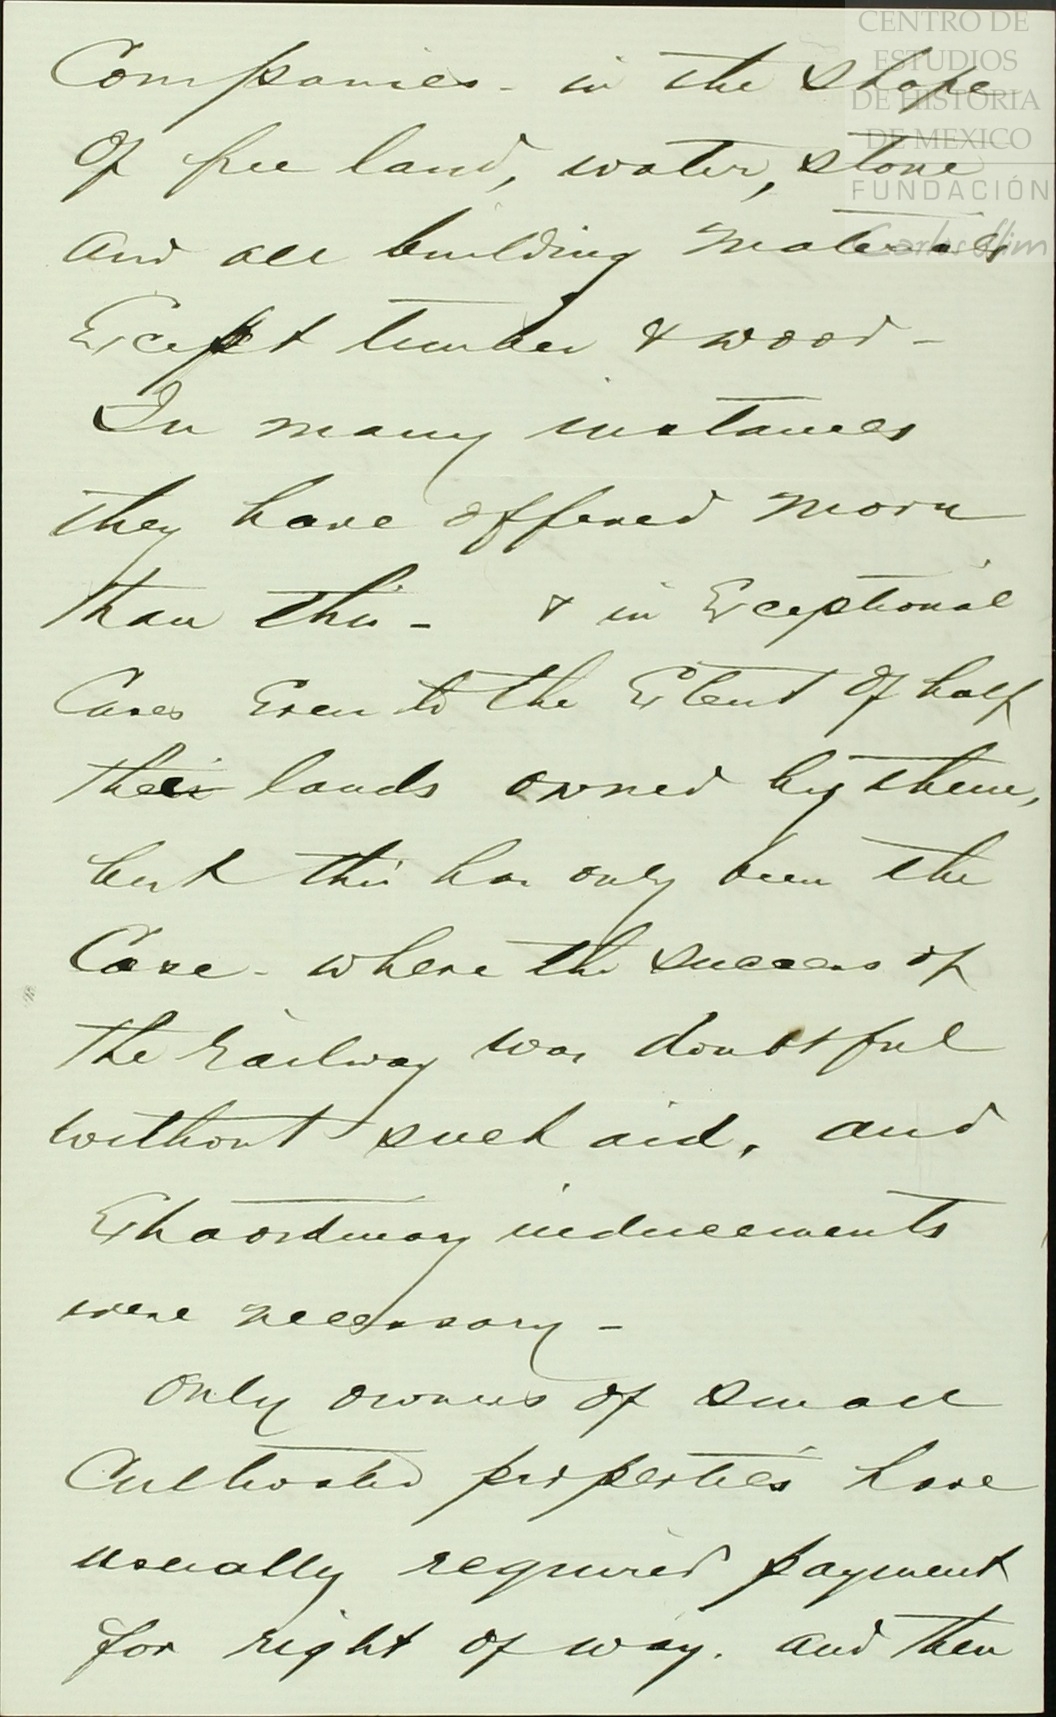 CENTRO DE
ESTUDIOS
DE HISTORIA
DE MEXICO
FUNDACIÓN
Carlos Slim
Companies - in the shape
of free land, water, stone
and all building materials
Except timber & wood -
In many instances
they have offered more
than this - & in Exceptional
Cases Even to the Extent of half
their lands owned by them,
but this has only been the
Case - where the success of
the railway was doubtful
without such aid, and
Extraordinary inducements
were necessary -
Only owners of small
Cultivated properties have
usually required payment
for right of way. and then